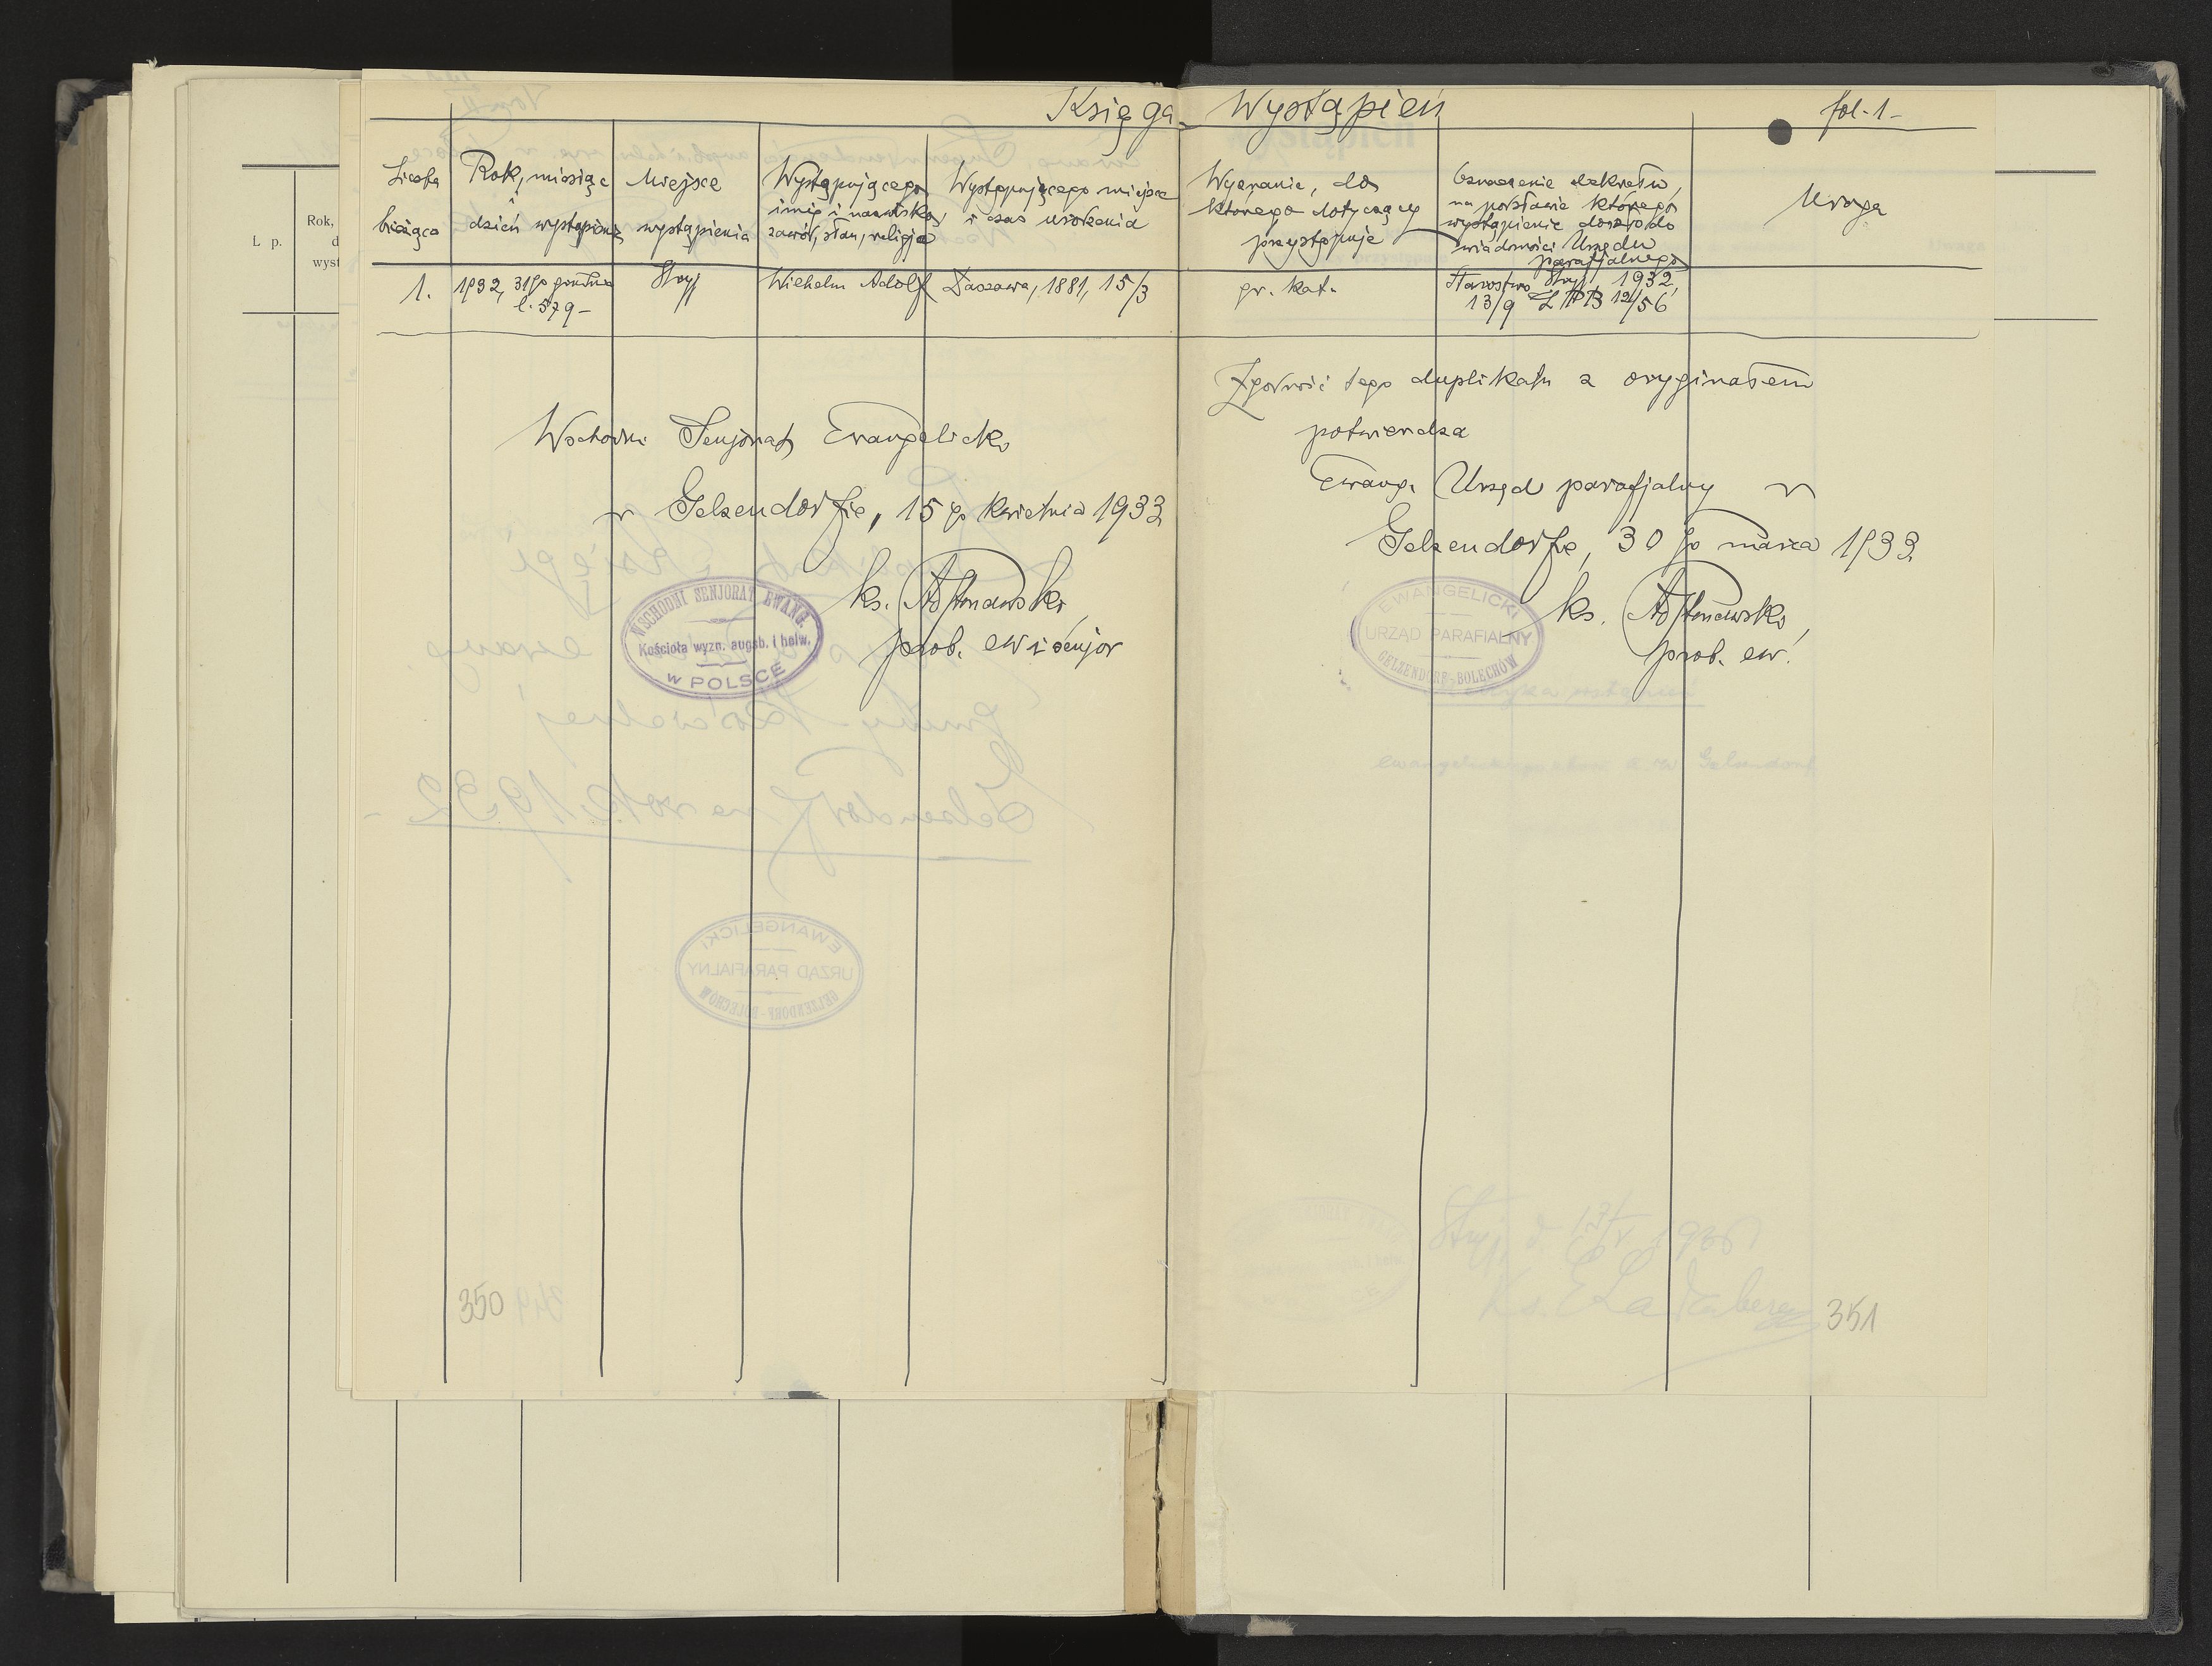 Księga Wystąpień fol-1-
Liczba
bieżąca
Rok, miesiąc
i
dzień wystąpienia
Miejsce
wystąpienia
Występującego
imię i nazwisko,
zawód, stan, religja
Występującego miejsce
i czas urodzenia
Wyznanie, do
którego dotyczący
przystępuje
Oznaczenie dekretu,
na podstawie którego
wystąpienie doszło do
wiadomości Urzędu
parafjalnego
Uwaga
1.
1932, 31go grudnia
l. 579-
Stryj
Wilhelm Adolf
Daszawa, 1881, 15/3
gr. kat.
Starostwo Stryj, 1932,
13/9 12/56
Wschodni Senjorat Ewangelicki
w Gelsendorfie, 15 go kwietnia 1933
ks.
prob. ew i senjor
WSCHODNI SENJORAT EWANG.
Kościoła wyzn. augsb. i helw.
w POLSCE
Zgodność tego duplikatu z oryginałem
potwierdza
Ewang. Urząd parafjalny w
Gelsendorfie, 30 go marca 1933.
ks.
prob. ew.
EWANGELICKI
URZĄD PARAFIALNY
GELZENDORF-BOLECHÓW
EWANGELICKI
URZĄD PARAFIALNY
GELZENDORF-BOLECHÓW
350
351
L p.
Rok,
d
wyst